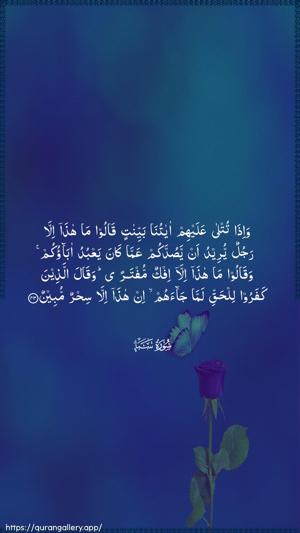 وَاِذَا تُتْلٰى عَلَيْهِمْ اٰيٰتُنَا بَيِّنٰتٍ قَالُوْا مَا هٰذَآ اِلَّا
رَجُلٌ يُّرِيْدُ اَنْ يَّصُدَّكُمْ عَمَّا كَانَ يَعْبُدُ اٰبَاۤؤُكُمْ ۚ
وَقَالُوْا مَا هٰذَآ اِلَّآ اِفْكٌ مُّفْتَرًى ۗوَقَالَ الَّذِيْنَ
كَفَرُوْا لِلْحَقِّ لَمَّا جَاۤءَهُمْ ۙ اِنْ هٰذَآ اِلَّا سِحْرٌ مُّبِيْنٌ ٤٣
سُوْرَةُ سَبَإٍ
https://qurangallery.app/